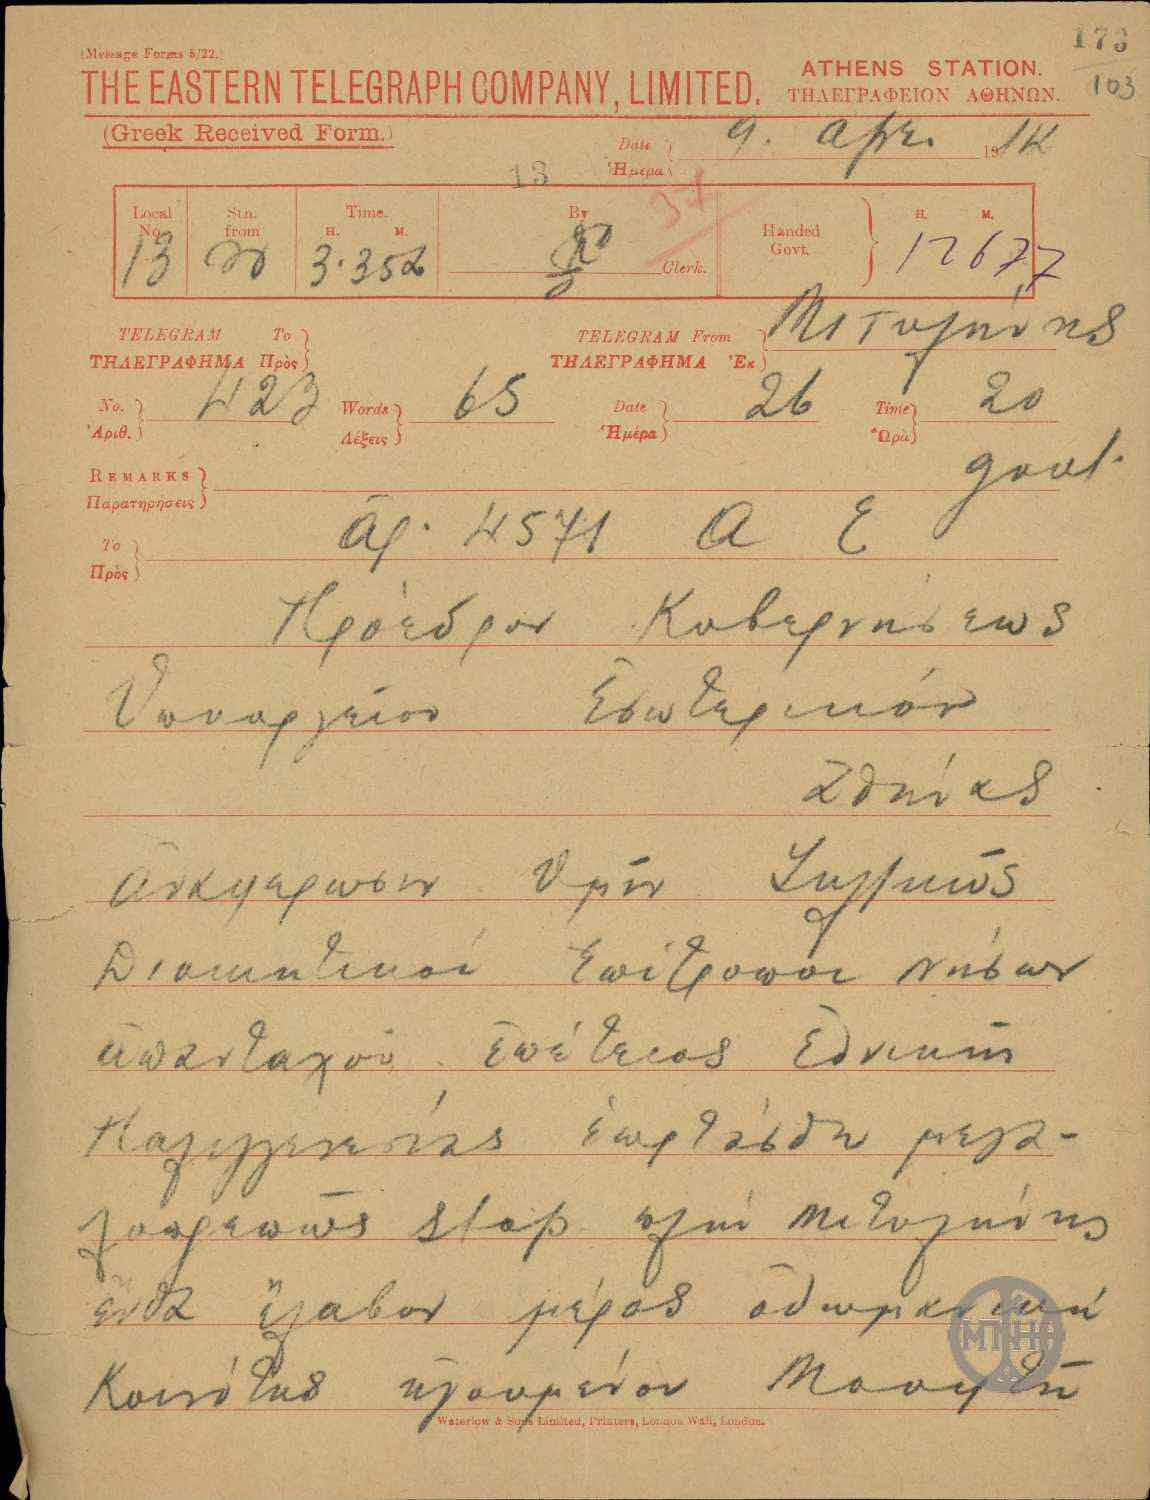 173
103
(Message Forms 5/22.)
THE EASTERN TELEGRAPH COMPANY, LIMITED.
ATHENS STATION.
ΤΗΛΕΓΡΑΦΕΙΟΝ ΑΘΗΝΩΝ.
(Greek Received Form.)
Date
Ἡμέρα
9. Απρ. 19
13
Local No. Stn. from Time. H. M. By Clerk. Handed Govt. H. M.
13 3.35 12677
TELEGRAM To
ΤΗΛΕΓΡΑΦΗΜΑ Πρὸς
TELEGRAM From
ΤΗΛΕΓΡΑΦΗΜΑ Ἐκ
Μιτυλήνης
No. Ἀριθ. 423 Words Λέξεις 65 Date Ἡμέρα 26 Time Ὥρα 20
REMARKS
Παρατηρήσεις
govt.
To
Πρὸς
Αρ. 4571 Α Ε
Πρόεδρον Κυβερνήσεως
Υπουργείον Εσωτερικών
Αθήνας
Αναφέρωσιν Υμίν
Διοικητικοί Επίτροποι νήσων
απανταχού επέτειος Εθνικής
Παλιγγενεσίας εωρτάσθη μεγα-
λοπρεπώς stop πλην Μιτυλήνης
ένθα έλαβον μέρος οθωμανική
Κοινότης ηγουμένου Μουφτή
Waterlow & Sons Limited, Printers, London Wall, London.